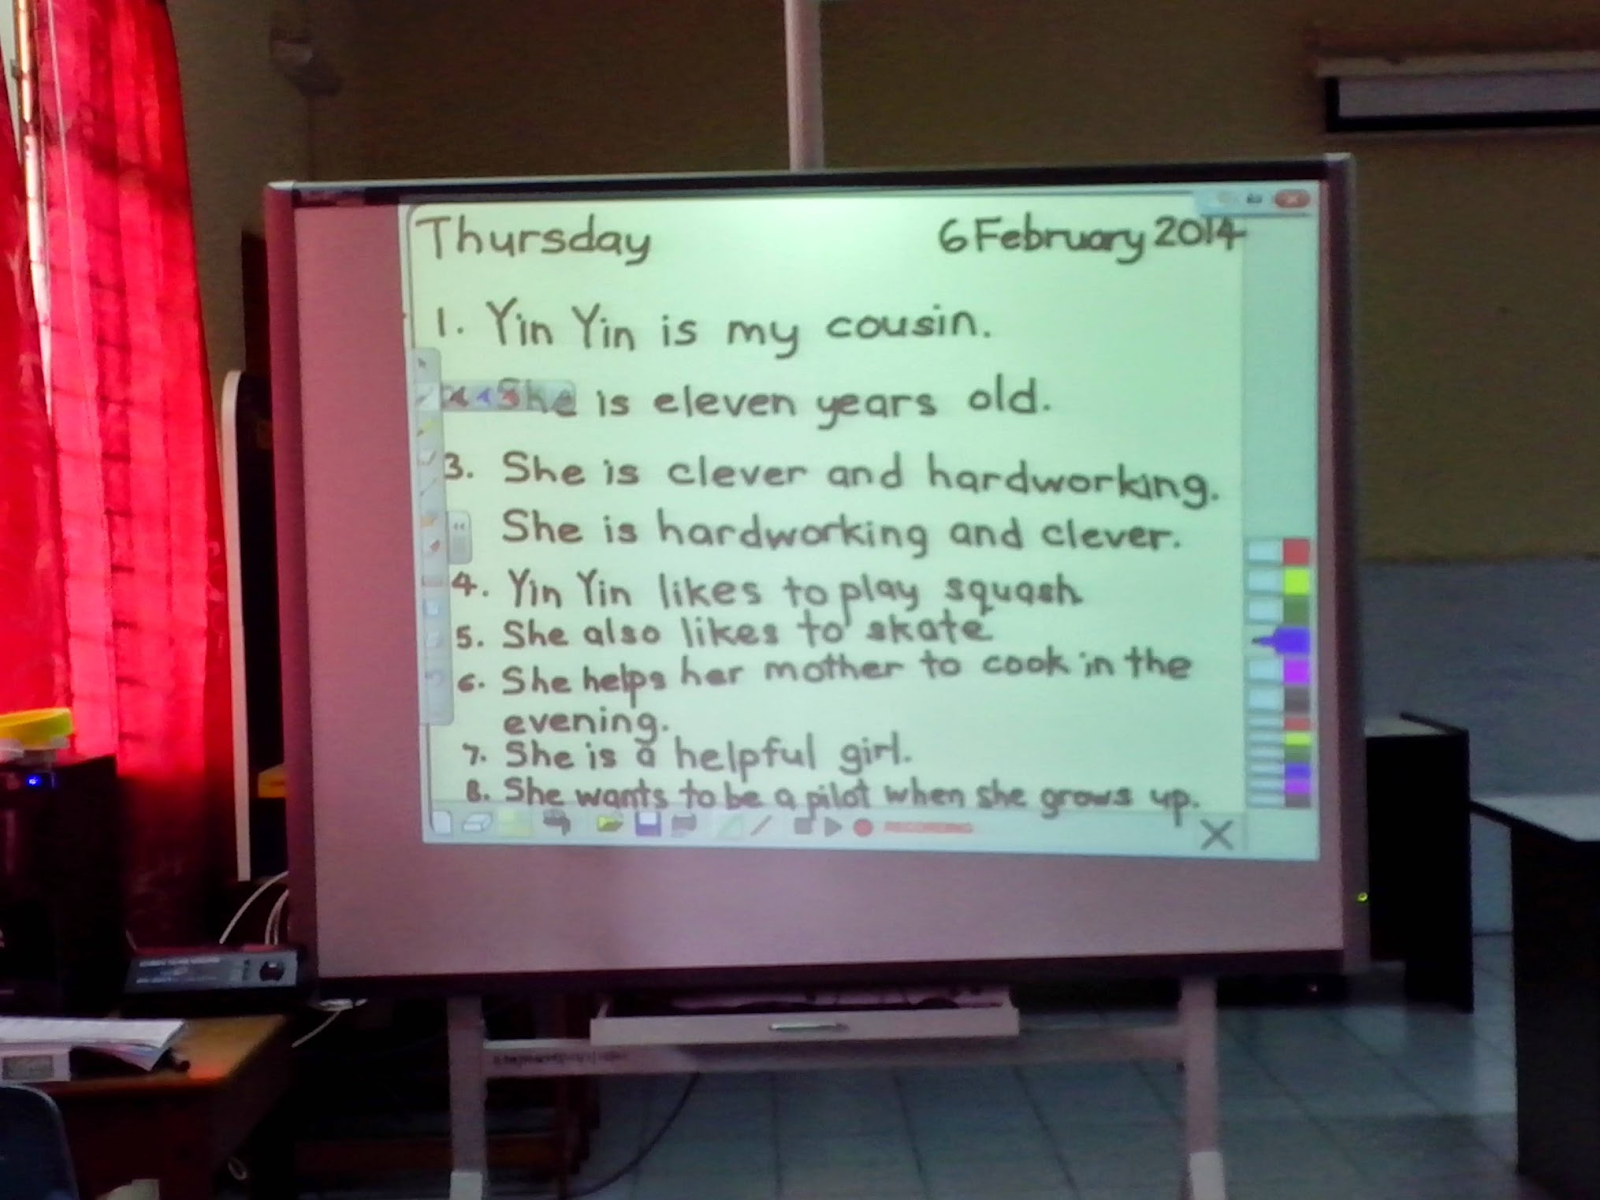 Thursday 6 February 2014
1. Yin Yin is my cousin.
She is eleven years old.
3. She is clever and hardworking.
She is hardworking and clever.
4. Yin Yin likes to play squash
5. She also likes to skate
6. She helps her mother to cook in the
evening.
7. She is a helpful girl.
8. She wants to be a pilot when she grows up.
RECORDING